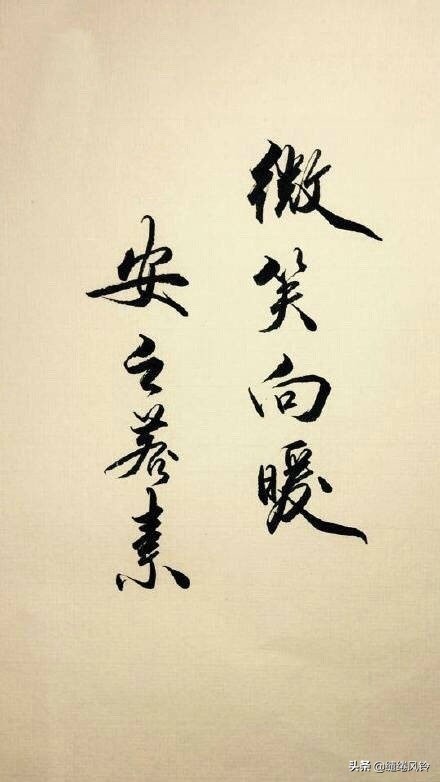 微笑向暖
安之若素
头条 @缱绻风铃